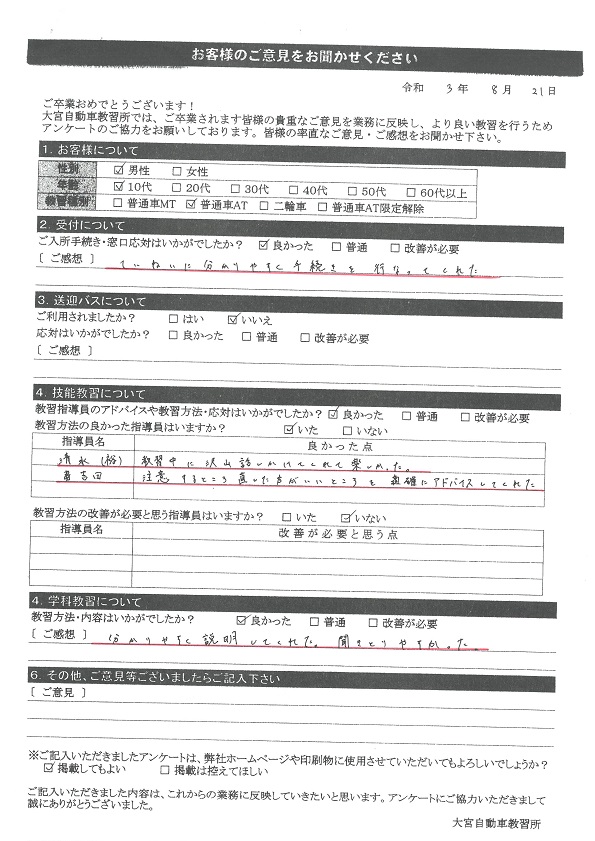 お客様のご意見をお聞かせください
令和 3年 8月 21日
ご卒業おめでとうございます！
大宮自動車教習所では、ご卒業されます皆様の貴重なご意見を業務に反映し、より良い教習を行うため
アンケートのご協力をお願いしております。皆様の率直なご意見・ご感想をお聞かせ下さい。
1. お客様について
性別 ☑ 男性 □ 女性
年齢 ☑ 10代 □ 20代 □ 30代 □ 40代 □ 50代 □ 60代以上
教習種別 □ 普通車MT ☑ 普通車AT □ 二輪車 □ 普通車AT限定解除
2. 受付について
ご入所手続き・窓口応対はいかがでしたか？ ☑ 良かった □ 普通 □ 改善が必要
〔 ご感想 〕 ていねいに分かりやすく手続きを行なってくれた
3. 送迎バスについて
ご利用されましたか？ □ はい ☑ いいえ
応対はいかがでしたか？ □ 良かった □ 普通 □ 改善が必要
〔 ご感想 〕
4. 技能教習について
教習指導員のアドバイスや教習方法・応対はいかがでしたか？ ☑ 良かった □ 普通 □ 改善が必要
教習方法の良かった指導員はいますか？ ☑ いた □ いない
指導員名 良かった点
清水(裕) 教習中に沢山話しかけてくれて楽しかった。
吉田 注意するところ直した方がいいところを的確にアドバイスしてくれた
教習方法の改善が必要と思う指導員はいますか？ □ いた ☑ いない
指導員名 改善が必要と思う点
4. 学科教習について
教習方法・内容はいかがでしたか？ ☑ 良かった □ 普通 □ 改善が必要
〔 ご感想 〕 分かりやすく説明してくれた。聞きとりやすかった。
6. その他、ご意見等ございましたらご記入下さい
〔 ご意見 〕
※ご記入いただきましたアンケートは、弊社ホームページや印刷物に使用させていただいてもよろしいでしょうか？
☑ 掲載してもよい □ 掲載は控えてほしい
ご記入いただきました内容は、これからの業務に反映していきたいと思います。アンケートにご協力いただきまして
誠にありがとうございました。
大宮自動車教習所